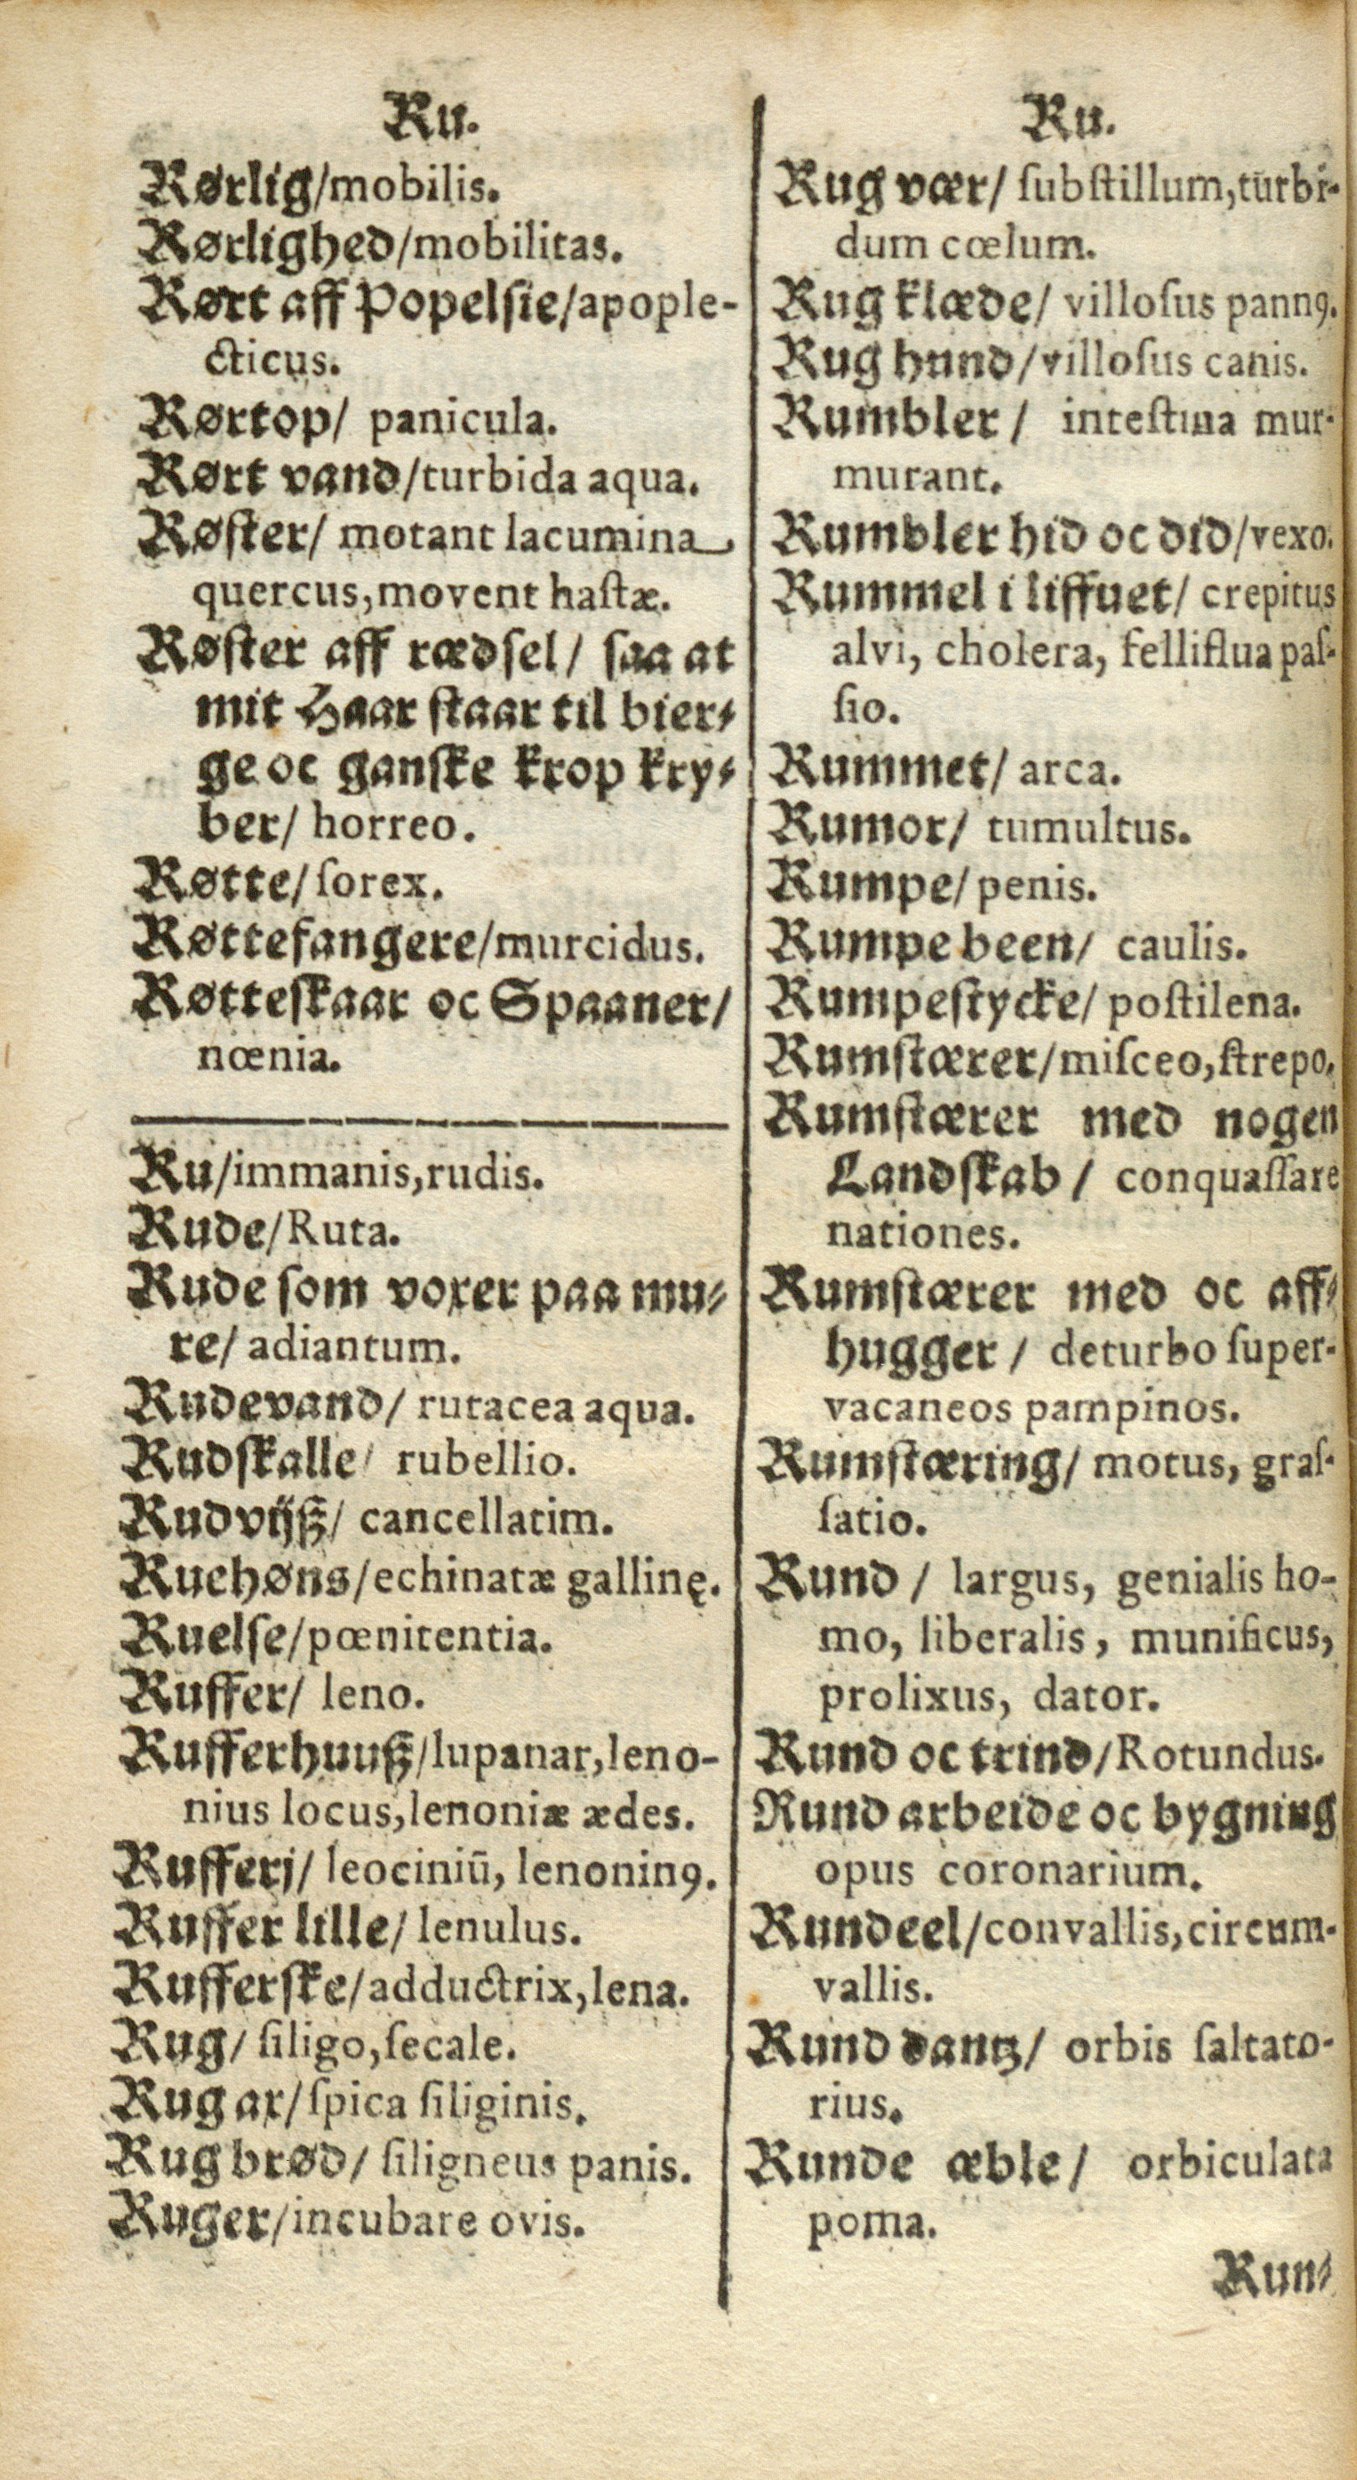 Ru.
Rørlig/mobilis.
Rørlighed/mobilitas.
Rørt aff Popelsie/apople-
cticus.
Rørtop/ panicula.
Rørt vand/turbida aqua.
Røſter/ motant lacumina
quercus,movent haſtæ.
Røſter aff rædſel/ ſaa at
mit Haar ſtaar til bier⸗
ge oc ganſke krop kry⸗
ber/ horreo.
Røtte/ſorex.
Røttefangere/murcidus.
Røtteſkaar oc Spaaner/
nœnia.
Ru/immanis,rudis.
Rude/Ruta.
Rude ſom voxer paa mu⸗
re/ adiantum.
Rudevand/ rutacea aqua.
Rudſkalle/ rubellio.
Rudvijß/ cancellatim.
Ruehøns/echinatæ gallinę.
Ruelſe/pœnitentia.
Ruffer/ leno.
Rufferhuuß/lupanar,leno-
nius locus,lenoniæ ædes.
Rufferj/ leociniū, lenoninꝰ.
Ruffer lille/ lenulus.
Rufferſke/adductrix,lena.
Rug/ ſiligo,ſecale.
Rug ax/ſpica ſiliginis.
Rug brød/ ſiligneus panis.
Ruger/incubare ovis.
Ru.
Rug vær/ ſubſtillum,turbi-
dum cœlum.
Rug klæde/ villoſus pannꝰ.
Rug hund/villoſus canis.
Rumbler/ inteſtina mur-
murant.
Rumbler hid oc did/vexo.
Rummel i liffuet/ crepitus
alvi, cholera, felliflua paſ-
ſio.
Rummet/ arca.
Rumor/ tumultus.
Rumpe/penis.
Rumpe been/ caulis.
Rumpeſtycke/ poſtilena.
Rumſtærer/miſceo,ſtrepo.
Rumſtærer med nogen
Landſkab/ conquaſſare
nationes.
Rumſtærer med oc aff⸗
hugger/ deturbo ſuper-
vacaneos pampinos.
Rumſtæring/ motus, graſ-
ſatio.
Rund/ largus, genialis ho-
mo, liberalis, munificus,
prolixus, dator.
Rund oc trind/Rotundus.
Rund arbeide oc bygning
opus coronarium.
Rundeel/convallis,circum-
vallis.
Rund dantz/ orbis ſaltato-
rius.
Runde æble/ orbiculata
poma.
Run⸗